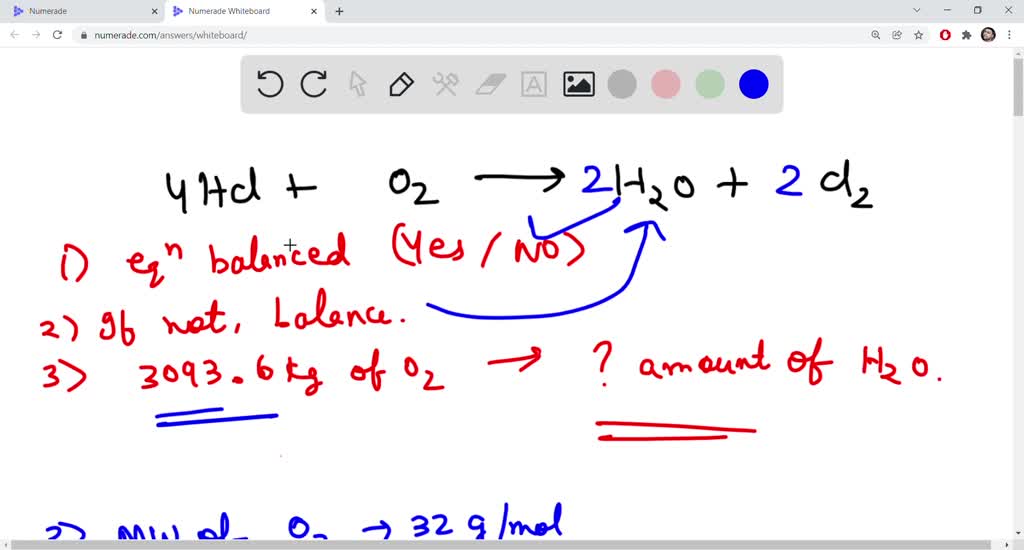 Numerade
Numerade Whiteboard
numerade.com/answers/whiteboard/
A
4HCl + O₂ → 2H₂O + 2Cl₂
1) eqⁿ balanced (Yes / NO)
2) If not, balance.
3) 3093.6 kg of O₂ → ? amount of H₂O.
3) MW of O₂ → 32 g/mol